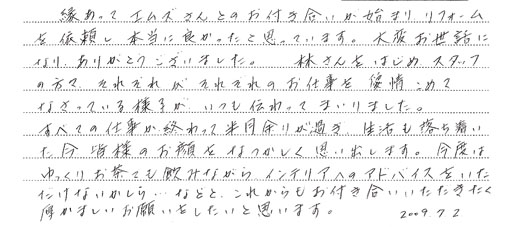 縁あって エムズさんとのお付き合いが始まり リフォーム
を依頼し 本当に良かったと思っています。大変お世話に
なり、ありがとうございました。 林さんをはじめ、スタッフ
の方々、それぞれがそれぞれのお仕事を 愛情こめて
なさっている様子が いつも伝わってまいりました。
すべての仕事が終わって半月余りが過ぎ、生活も落ち着い
た今 皆様のお顔をなつかしく思い出します。今度は
ゆっくりお茶でも飲みながら インテリアへのアドバイスをいた
だけないかしら…などと、これからもお付き合いいただきたく
厚かましいお願いをしたいと思います。 2009.7.2